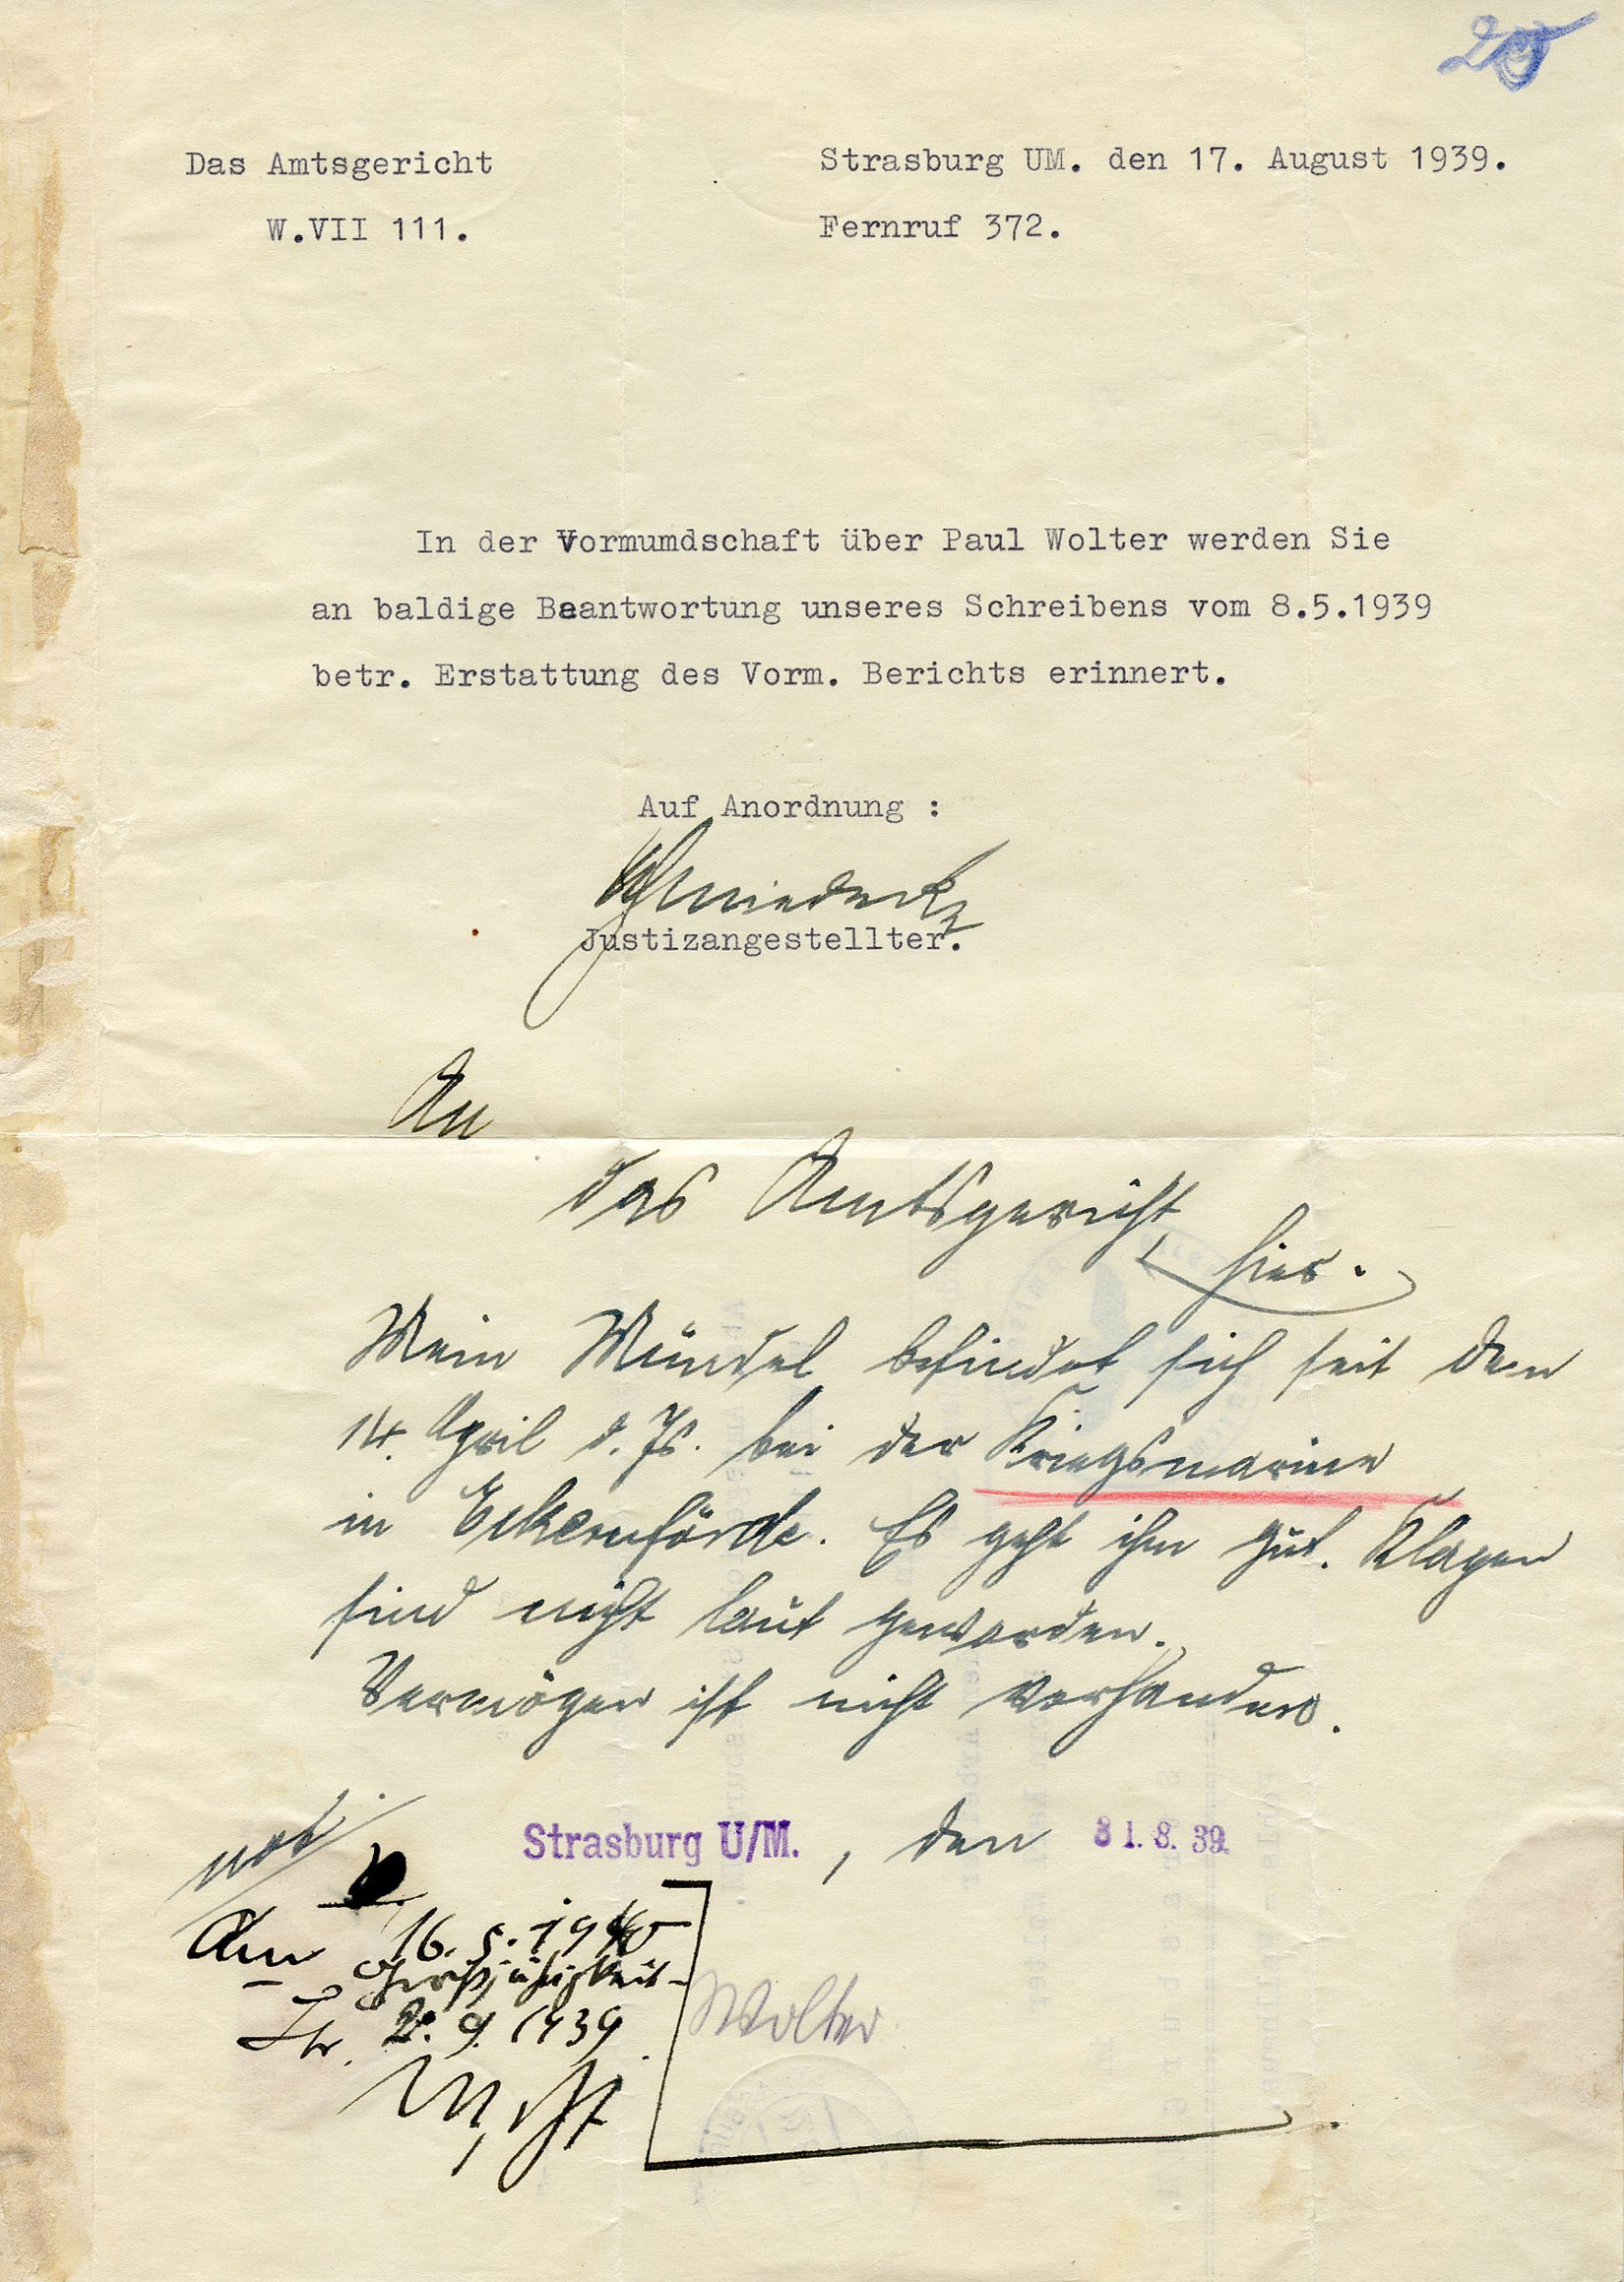 20
Das Amtsgericht
W.VII 111.
Strasburg UM. den 17. August 1939.
Fernruf 372.
In der Vormumdschaft über Paul Wolter werden Sie
an baldige Beantwortung unseres Schreibens vom 8.5.1939
betr. Erstattung des Vorm. Berichts erinnert.
Auf Anordnung :
Justizangestellter.
An
das Amtsgericht
hier.
Mein Mündel befindet sich seit dem
14. April d. Js. bei der Kriegsmarine
in Eckernförde. Es geht ihm gut. Klagen
sind nicht laut geworden.
Vermögen ist nicht vorhanden.
Strasburg U/M. , den 31.8.39.
Am 16.5.1940
Großjährigkeit
Str. 2.9.1939
Wolter